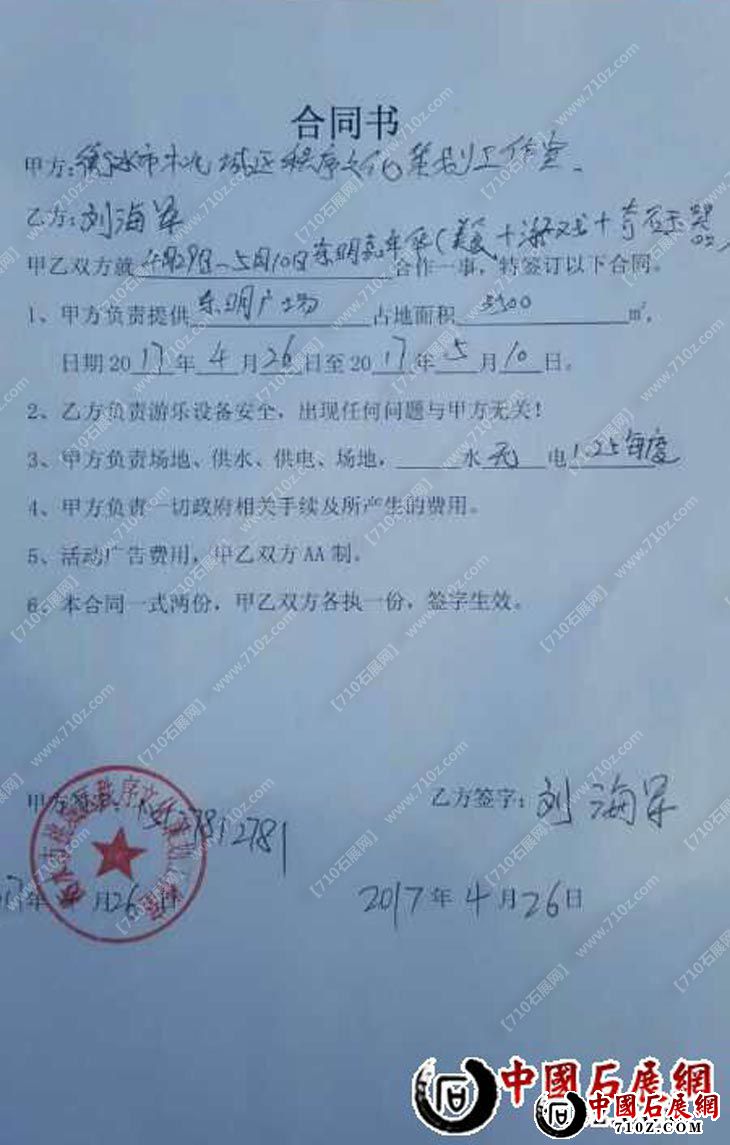 合同书
甲方:衡水市桃城区秩序文化策划工作室.
乙方:刘海军
甲乙双方就4月29日~5月10日东明嘉年华(美食+游戏+奇石玉器 合作一事,特签订以下合同。
1、甲方负责提供东明广场占地面积3500m²,
日期2017年4月26日至2017年5月10日。
2、乙方负责游乐设备安全,出现任何问题与甲方无关!
3、甲方负责场地、供水、供电、场地,水无电1.25每度
4、甲方负责一切政府相关手续及所产生的费用。
5、活动广告费用,甲乙双方AA制。
6、本合同一式两份,甲乙双方各执一份,签字生效。
甲方签 27812781
乙方签字:刘海军
17年 月26日
2017年4月26日
中國石展網
中國石展網
710Z.COM
【710石展网】www.710z.com